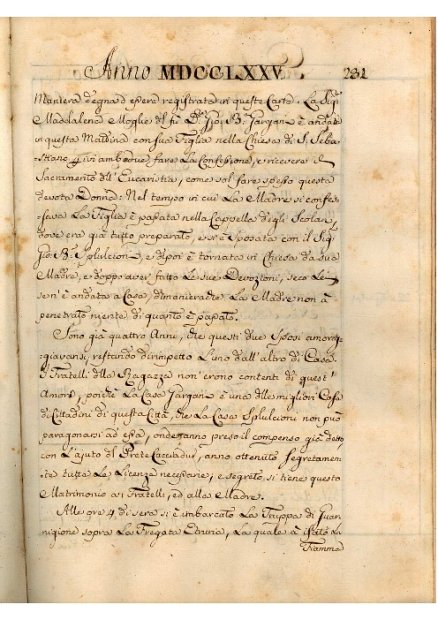 Anno MDCCLXXV. 231
Maniera degna d'essere registrata in queste Carte. La Sigra
Maddalena Moglie del fù Dr Gio: Ba Gargani è andata
in questa Mattina con sua Figlia nella Chiesa di S. Seba-
stiano p ivi ambedue fare La Confessione, e ricevere il
Sacramento dell'Eucaristia, come sol fare spesso questa
devota Donna: Nel tempo in cui La Madre si confes-
sava La Figlia è passata nella Cappella degli Scolari,
dove era già tutto preparato, e si è sposata con il Sigr
Gio: Ba Splulcioni, e dipoi è tornata in Chiesa da sua
Madre, e doppo aver fatto Le sue Devozioni, seco Lei
se n'è andata a Casa, dimanierachè La Madre non à
penetrato niente di quanto è passato.
Sono già quattro Anni, che questi due Sposi amoreg-
giavansi, restando dirimpetto L'uno dall'altro di Casa.
I Fratelli della Ragazza non erono contenti di quest'
Amore, poichè La Casa Gargani è una delle migliori Case
di Cittadini di questa Città, che La Casa Splulcioni non può
paragonarsi ad essa, onde anno preso il compenso già detto
con L'ajuto del Prete Cacciadur, anno ottenuto segretamen-
te tutte Le Licenze necessarie, e segreto si tiene questo
Matrimonio a i Fratelli, ed alla Madre.
Alle ore 4 di sera si è imbarcato La Truppa di Guar-
nigione sopra La Fregata Etruria, La quale à
Fiamma